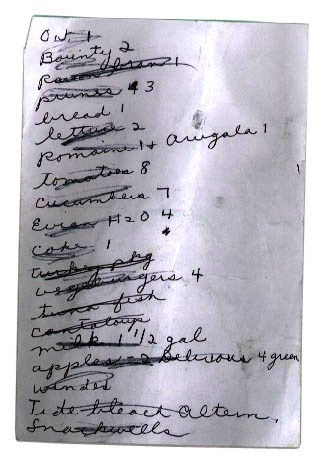 Oat 1
Bounty 2
Raisin bran 1
prunes 3
bread 1
lettuce 2
Romaine 1 + Arugala 1
tomatoes 8
cucumbers 7
Evian H2O 4
coke 1
turkey pkg
vegeburgers 4
tuna fish
cantaloup
milk 1 1/2 gal
apples 2 Delicious 4 green
windex
Tide bleach Altern.
Snackwells